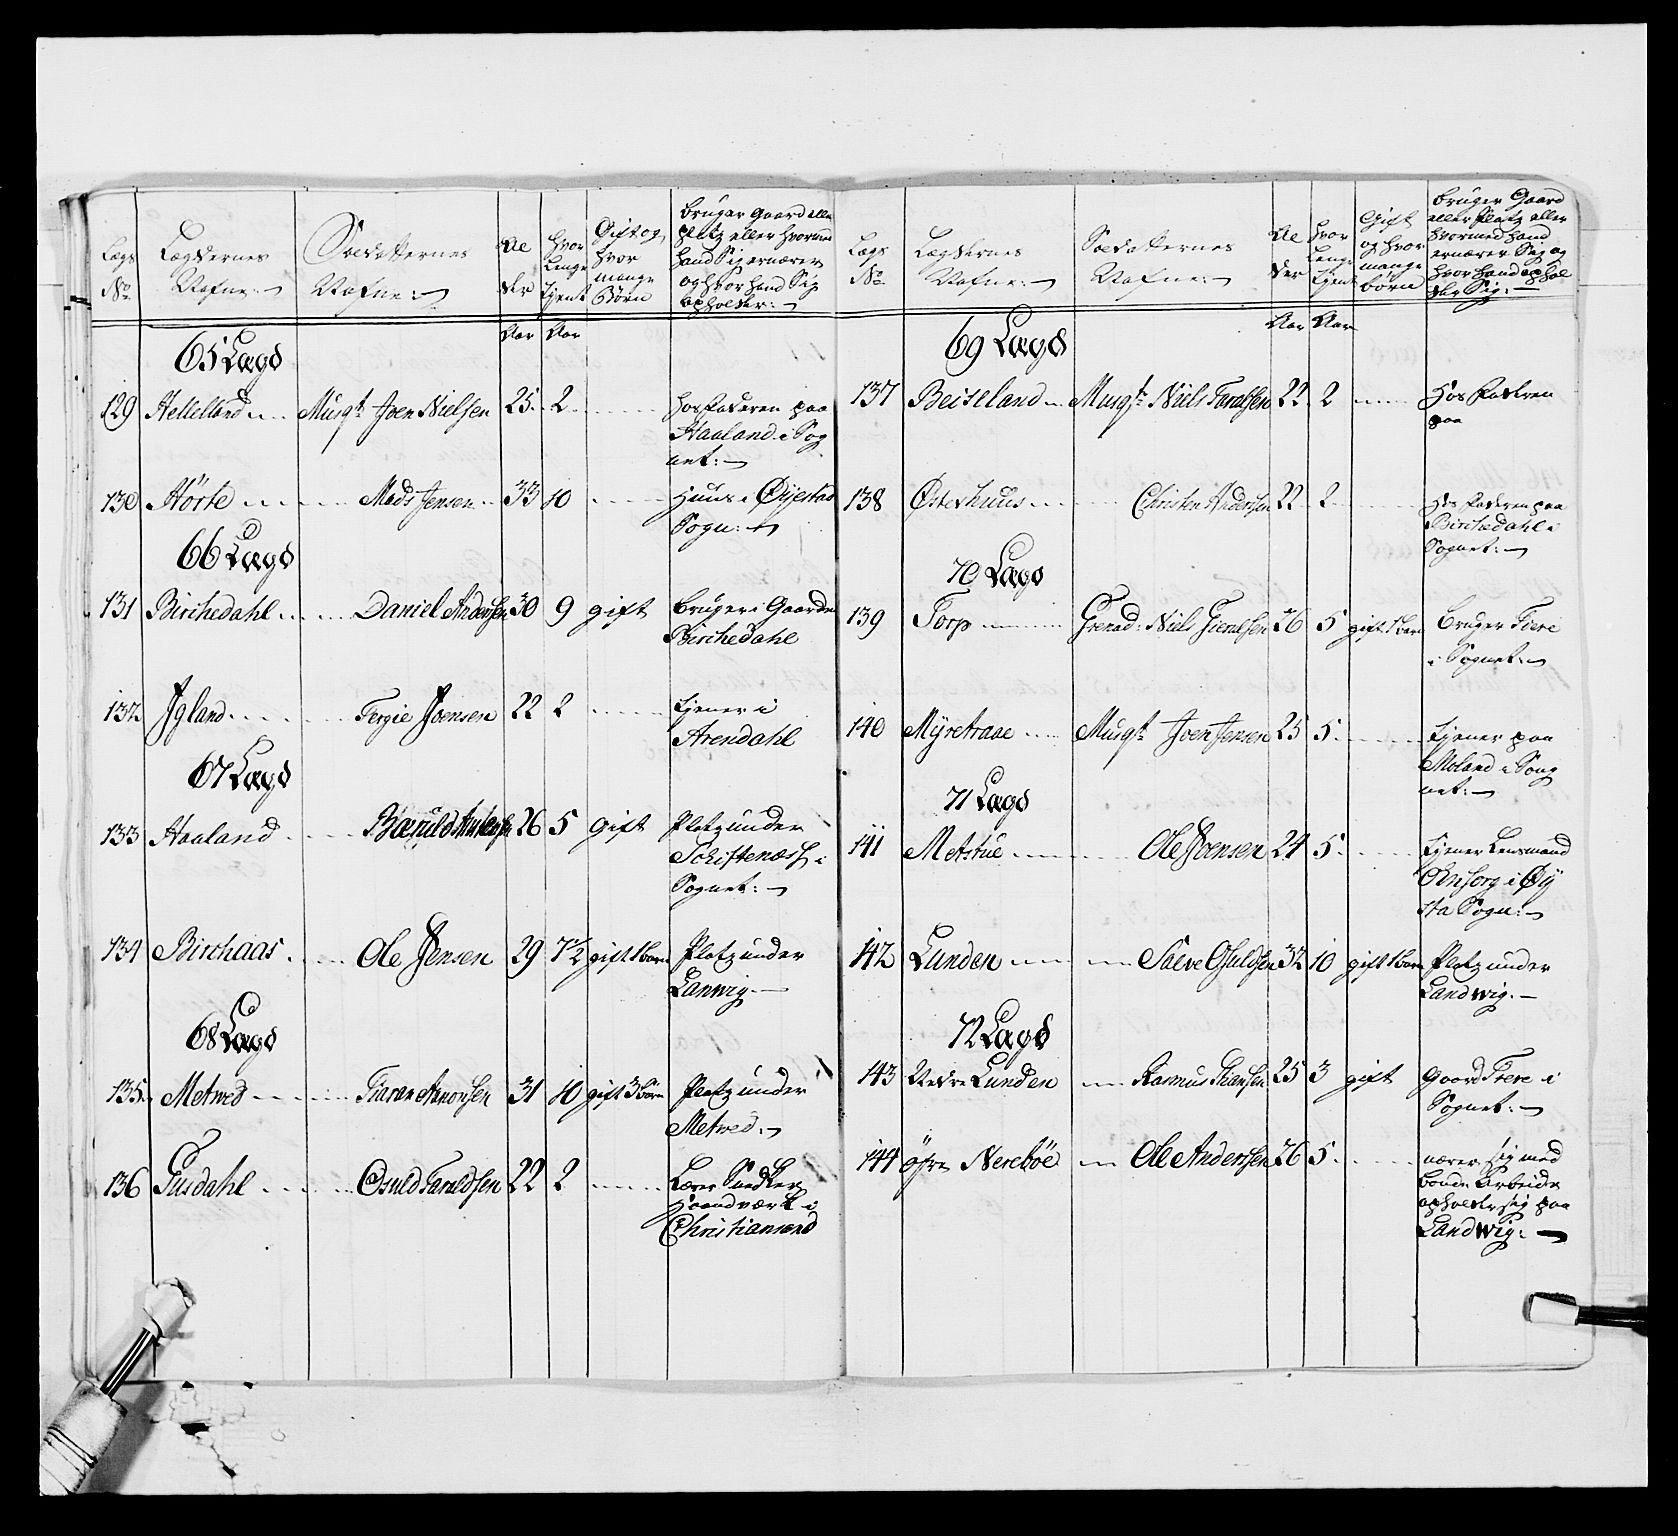 Lægs No. Lægdernes Nafne:
Soldatternes Nafne:
Alder
Hvor Lenge tjent
Gift og hvor mange Børn
bruger Gaard eller platz eller hvormed hand Sig ernærer og hvor hand Sig opholder:
Aar Aar
65 Lægd
129 Hellelland Musqt. Joen Nielsen 25. 2 hos faderen paa
Haaland i Sog
net:
130 Hörte Mads Jensen 33 10 Huus i Öyestad
Sogn:
66 Lægd
131 Birchedahl Daniel Andersen 30 9 gift bruger i Gaarden
Birchedahl
132 Igland Tergie Joensen 22 2 tjener i
Arendahl
67 Lægd
133 Haaland 26 5 gift Platz under
i
Sognet:
134 Birchaas Ole Jensen 29 7½ gift 1 barn Platz under
Lanwig.
68 Lægd
135. Metwed Aanonsen 31 10 gift 3 børn Platz under
Metwed.
136 Gusdahl Osuld Taraldsen 22 2 Lærer Snedker
Haandværk i
Christiansand
Lægs No. Lægdernes Nafne:
Soldatternes Nafne:
Alder
Hvor Lenge tjent
Gift og hvor mange börn
bruger Gaard eller Platz eller hvormed hand ernærer Sig og hvor hand opholder Sig:
Aar Aar
69 Lægd
137 Beiseland Musqt. Niels Taralsen 22 2 Hos Faderen
paa
138 Østerhuus Christen Andersen 22 2 hos faderen paa
Birchedahl i
Sognet:
70 Lægd
139 Torp Grenad: Niels 26 5 gift 1 barn bruger Fiere
i Sognet:
140 Myretraae Musqt Joen Jensen 25 5. tjener paa
Moland i Sog
net:
71 Lægd
141 Metstue Ole Joensen 24 5. tjener Lensmand
i Öy
sta Sogn:
142 Lunden Osuldsen 32 10 gift 1 barn Platz under
Landwig.
72 Lægd
143 Nedre Lunden Rasmus 25 3 gift Gaard Frere i
Sognet:
144 öfre Nereböe Ole Andersen 26 5. nærer sig med
bonde Arbeide
opholder sig paa
Landwig: